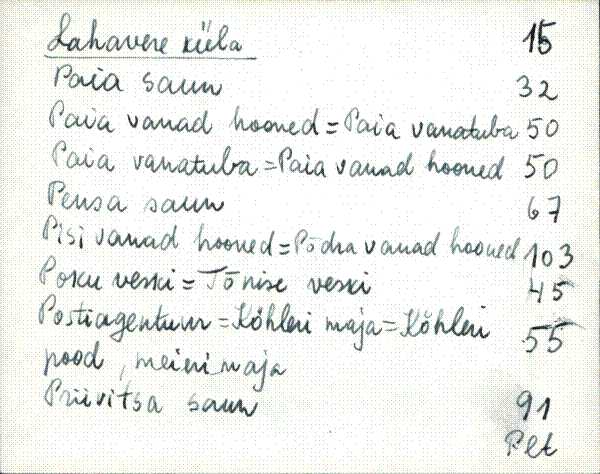 Lahavere küla 15
Paia saun 32
Paia vanad hooned = Paia vanatuba 50
Paia vanatuba = Paia vanad hooned 50
Pensa saun 67
Pisi vanad hooned = Põdra vanad hooned 103
Posu veski = Tõnise veski 45
Postiagentuur = Köhleri maja = Köhleri 55
pood, meieri maja
Priivitsa saun 91
Plt